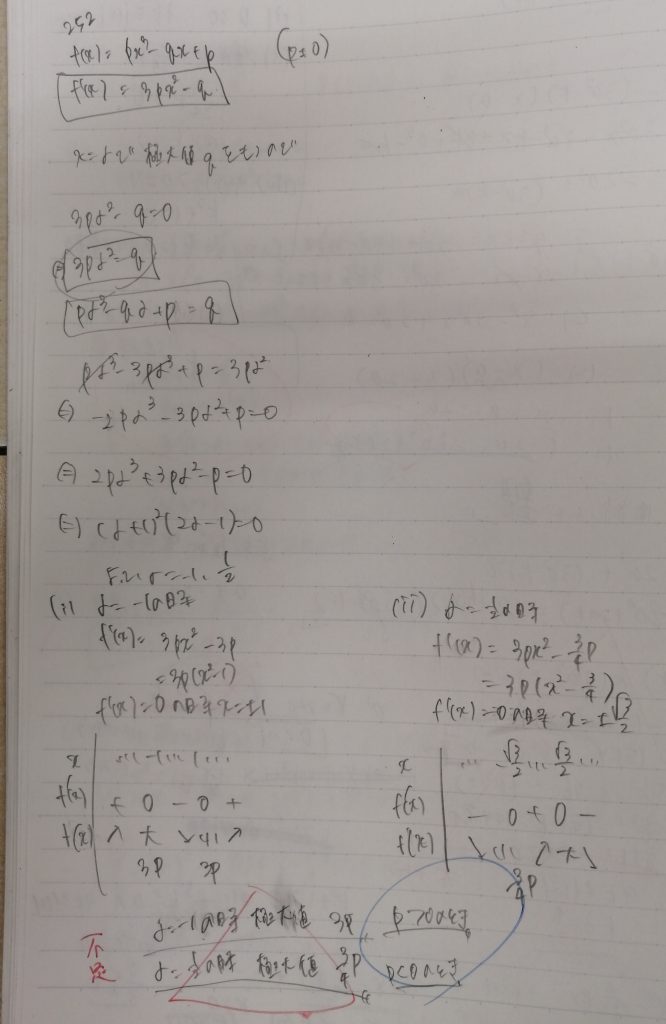 252
f(x) = px³ - qx + p (p≠0)
f'(x) = 3px² - q
x=αで極大値qをもつので
3pα² - q = 0
⇔ 3pα² = q
pα³ - qα + p = q
pα³ - 3pα³ + p = 3pα²
⇔ -2pα³ - 3pα² + p = 0
⇔ 2pα³ + 3pα² - p = 0
⇔ (α+1)²(2α-1) = 0
よって, α = -1, 1/2
(i) α = -1の時
f'(x) = 3px² - 3p
= 3p(x²-1)
f'(x) = 0の時 x = ±1
x … -1 … 1 …
f'(x) + 0 - 0 +
f(x) ↗ 大 ↘ 小 ↗
3p 3p
(ii) α = 1/2の時
f'(x) = 3px² - 3/4p
= 3p(x² - 3/4)
f'(x) = 0の時 x = ±√3/2
x … √3/2 … √3/2 …
f(x) - 0 + 0 -
f'(x) ↘ 小 ↗ 大 ↘
3/4p
α = -1の時 極大値 3p, p>0のとき
α = 1/2の時 極大値 3/4p p<0のとき
不足